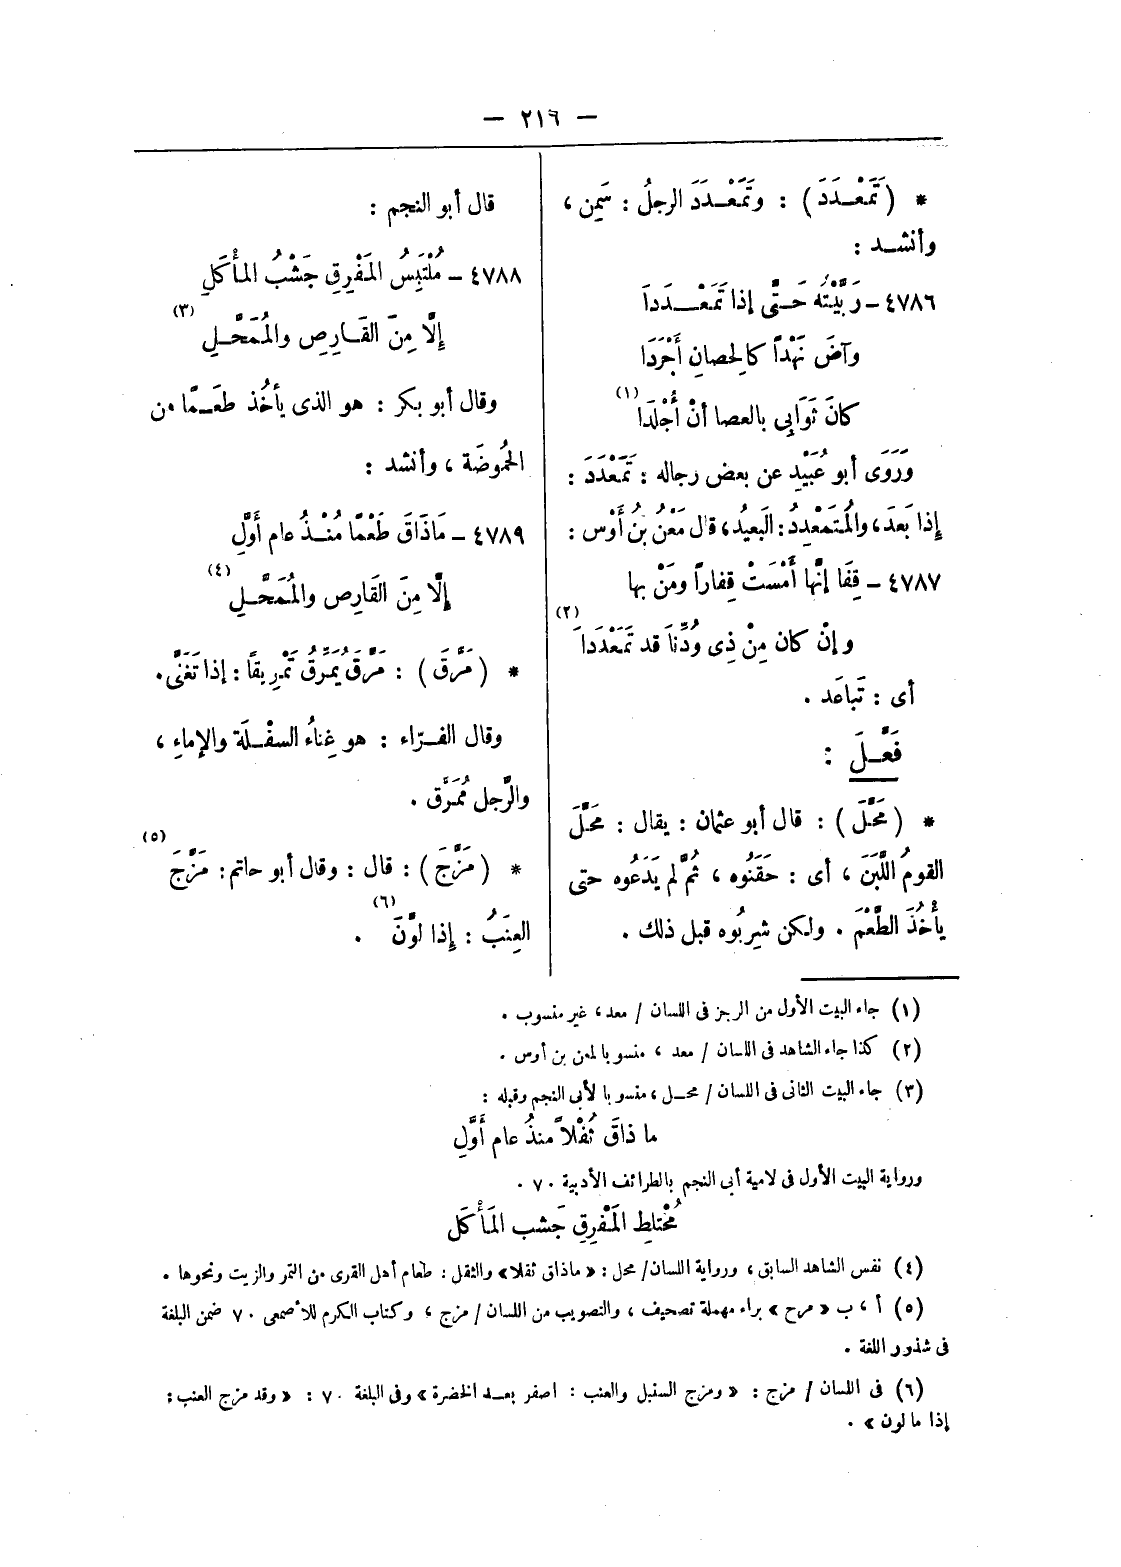 — ٢١٦ —
* ( تَمَعْـدَدَ ) : وتَمَعْـدَدَ الرجلُ : سَمِن ،
وأنشـد :
٤٧٨٦ ـ رَبَّيْتُه حَـتَّى إذا تَمَعْـدَدَا
وآضَ نَهْداً كالحصانِ أَجْرَدَا
كانَ ثَوَابِى بالعصا أنْ أُجْلَدَا (١)
وَرَوَى أبو عُبَيْدٍ عن بعض رجاله : تَمَعْدَدَ :
إذا بَعدَ، والمُتَمَعْدِدُ : البَعيدُ، قال مَعْنُ بنُ أَوْس :
٤٧٨٧ ـ قِفَا إنَّها أَمْسَتْ قِفاراً ومَنْ بها
وإنْ كان مِنْ ذِى وُدِّنَا قد تَمَعْدَدَا (٢)
أى : تَباعَد .
فَعَّـلَ :
* ( مَحَّلَ ) : قال أبو عثمان : يقال : مَحَّلَ
القومُ اللَّبَنَ ، أى : حَقَنُوه ، ثُمَّ لم يَدَعُوه حتى
يأْخُذَ الطَّعْمَ . ولكن شرِبُوه قبل ذلك .
قال أبو النجم :
٤٧٨٨ ـ مُلْتَبِسُ المَفْرِقِ جَشْبُ المأْكَلِ
إلَّا مِنَ القَـارِصِ والمُمَحَّـلِ (٣)
وقال أبو بكر : هو الذى يأخُذ طعَـمًا من
الحمُوضَة ، وأنشد :
٤٧٨٩ ـ مَاذَاقَ طَعْمًا مُنْـذُ عام أَوَّلِ
إلَّا مِنَ القَارِصِ والمُمَحَّـلِ (٤)
* ( مَرَّقَ ) : مَرَّقَ يُمَرِّقُ تَمْرِيقاً : إذا تَغَنَّى .
وقال الفـرّاء : هو غِناءُ السفْـلَة والإماءِ ،
والرَّجل مُمَرِّق .
* ( مَزَّجَ ) : قال : وقال أبو حاتم : مَزَّجَ (٥)
العِنَبُ : إذا لوَّنَ (٦) .
(١) جاء البيت الأول من الرجز فى اللسان / معد ، غير منسوب .
(٢) كذا جاء الشاهد فى اللسان / معد ، منسوبا لمعن بن أوس .
(٣) جاء البيت الثانى فى اللسان / محـل ، منسوبا لأبى النجم وقبله :
ما ذاقَ ثُفْلاً منذُ عام أَوَّلِ
ورواية البيت الأول فى لامية أبى النجم بالطرائف الأدبية ٧٠ .
مُخْتاطِ المَفْرِقِ جَشب المَأْكَل
(٤) نفس الشاهد السابق ، ورواية اللسان / محل : « ماذاق ثفلا » والثفل : طعام أهل القرى من التمر والزيت ونحوها .
(٥) أ ، ب « مرح » براء مهملة تصحيف ، والتصويب من اللسان / مزج ، وكتاب الكرم للأصمعى ٧٠ ضمن البلغة
فى شذور اللغة .
(٦) فى اللسان / مزج : « ومزج السنبل والعنب : اصفر بعـد الخضرة » وفى البلغة ٧٠ : « وقد مزج العنب :
إذا ما لون » .